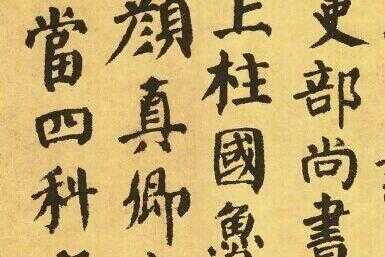 吏部尚書
上柱國魯
顔真卿
當四科